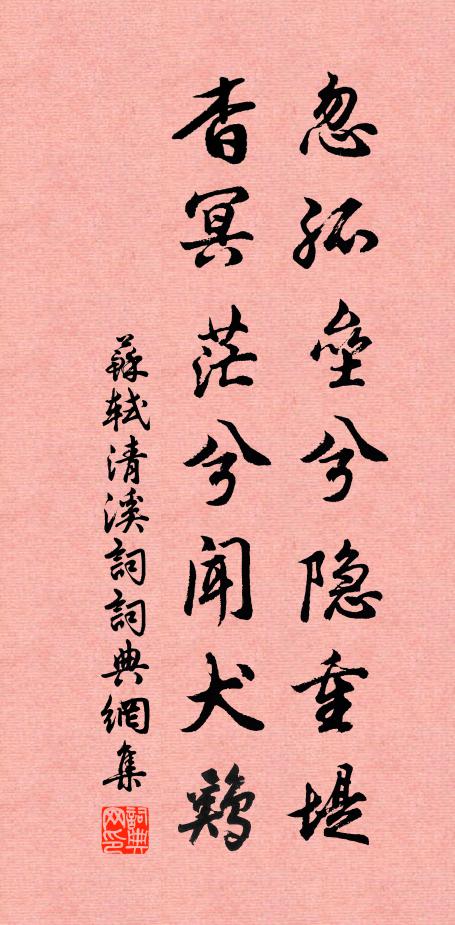 忽孤壘兮隐重堤
杳冥茫兮闻犬鷄
蘇軾清溪詞詞典網集
詞典网印